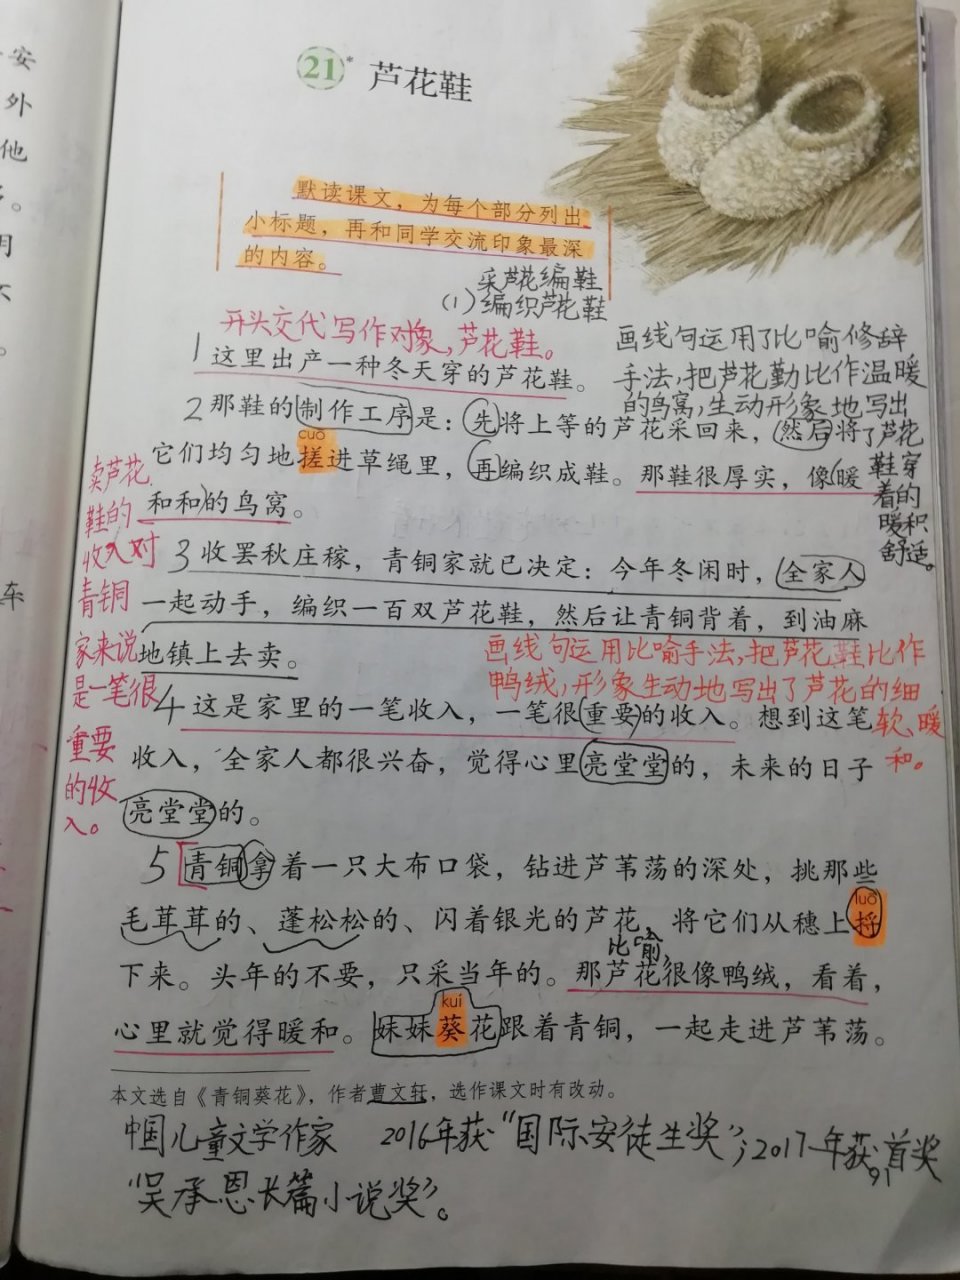 安
外
他
。
21* 芦花鞋
默读课文，为每个部分列出
小标题，再和同学交流印象最深
的内容。
采芦花编鞋
(1)编织芦花鞋
开头交代写作对象，芦花鞋。
1 这里出产一种冬天穿的芦花鞋。
画线句运用了比喻修辞
手法，把芦花勤比作温暖
的鸟窝，生动形象地写出
了芦花
鞋穿
着的
暖和
舒适。
2 那鞋的制作工序是：先将上等的芦花采回来，然后将
cuō
它们均匀地搓进草绳里，再编织成鞋。那鞋很厚实，像暖
和和的鸟窝。
卖芦花
鞋的
收入对
青铜
家来说
是一笔很
重要
的收
入。
3 收罢秋庄稼，青铜家就已决定：今年冬闲时，全家人
一起动手，编织一百双芦花鞋，然后让青铜背着，到油麻
地镇上去卖。
画线句运用比喻手法，把芦花鞋比作
鸭绒，形象生动地写出了芦花的细
软、暖
和。
4 这是家里的一笔收入，一笔很重要的收入。想到这笔
收入，全家人都很兴奋，觉得心里亮堂堂的，未来的日子
亮堂堂的。
5 青铜拿着一只大布口袋，钻进芦苇荡的深处，挑那些
luō
毛茸茸的、蓬松松的、闪着银光的芦花，将它们从穗上捋
比喻
下来。头年的不要，只采当年的。那芦花很像鸭绒，看着，
kuí
心里就觉得暖和。妹妹葵花跟着青铜，一起走进芦苇荡。
本文选自《青铜葵花》，作者曹文轩，选作课文时有改动。
中国儿童文学作家 2016年获“国际安徒生奖”；2017年获首奖
“吴承恩长篇小说奖”。
91
车